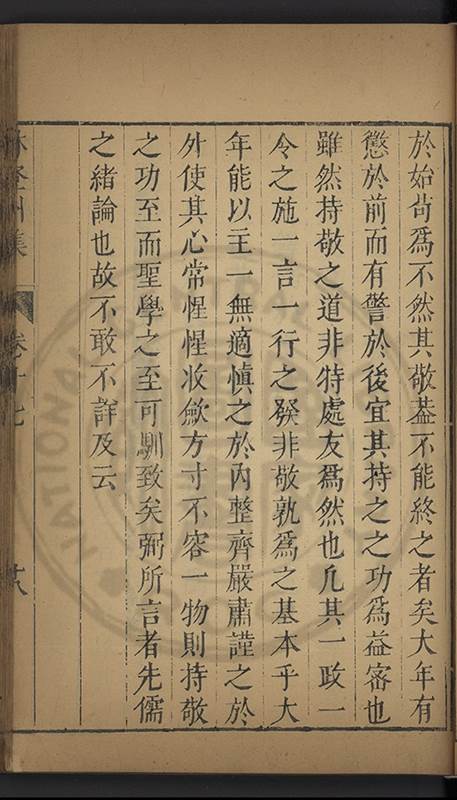 於始苟爲不然其敬葢不能終之者矣大年有
懲於前而有警於後宜其持之之功爲益密也
雖然持敬之道非特處友爲然也凡其一政一
令之施一言一行之發非敬孰爲之基本乎大
年能以主一無適慎之於內整齊嚴肅謹之於
外使其心常惺惺收歛方寸不容一物則持敬
之功至而聖學之至可馴致矣弼所言者先儒
之緒論也故不敢不詳及云
林登州集 卷十七 廿八